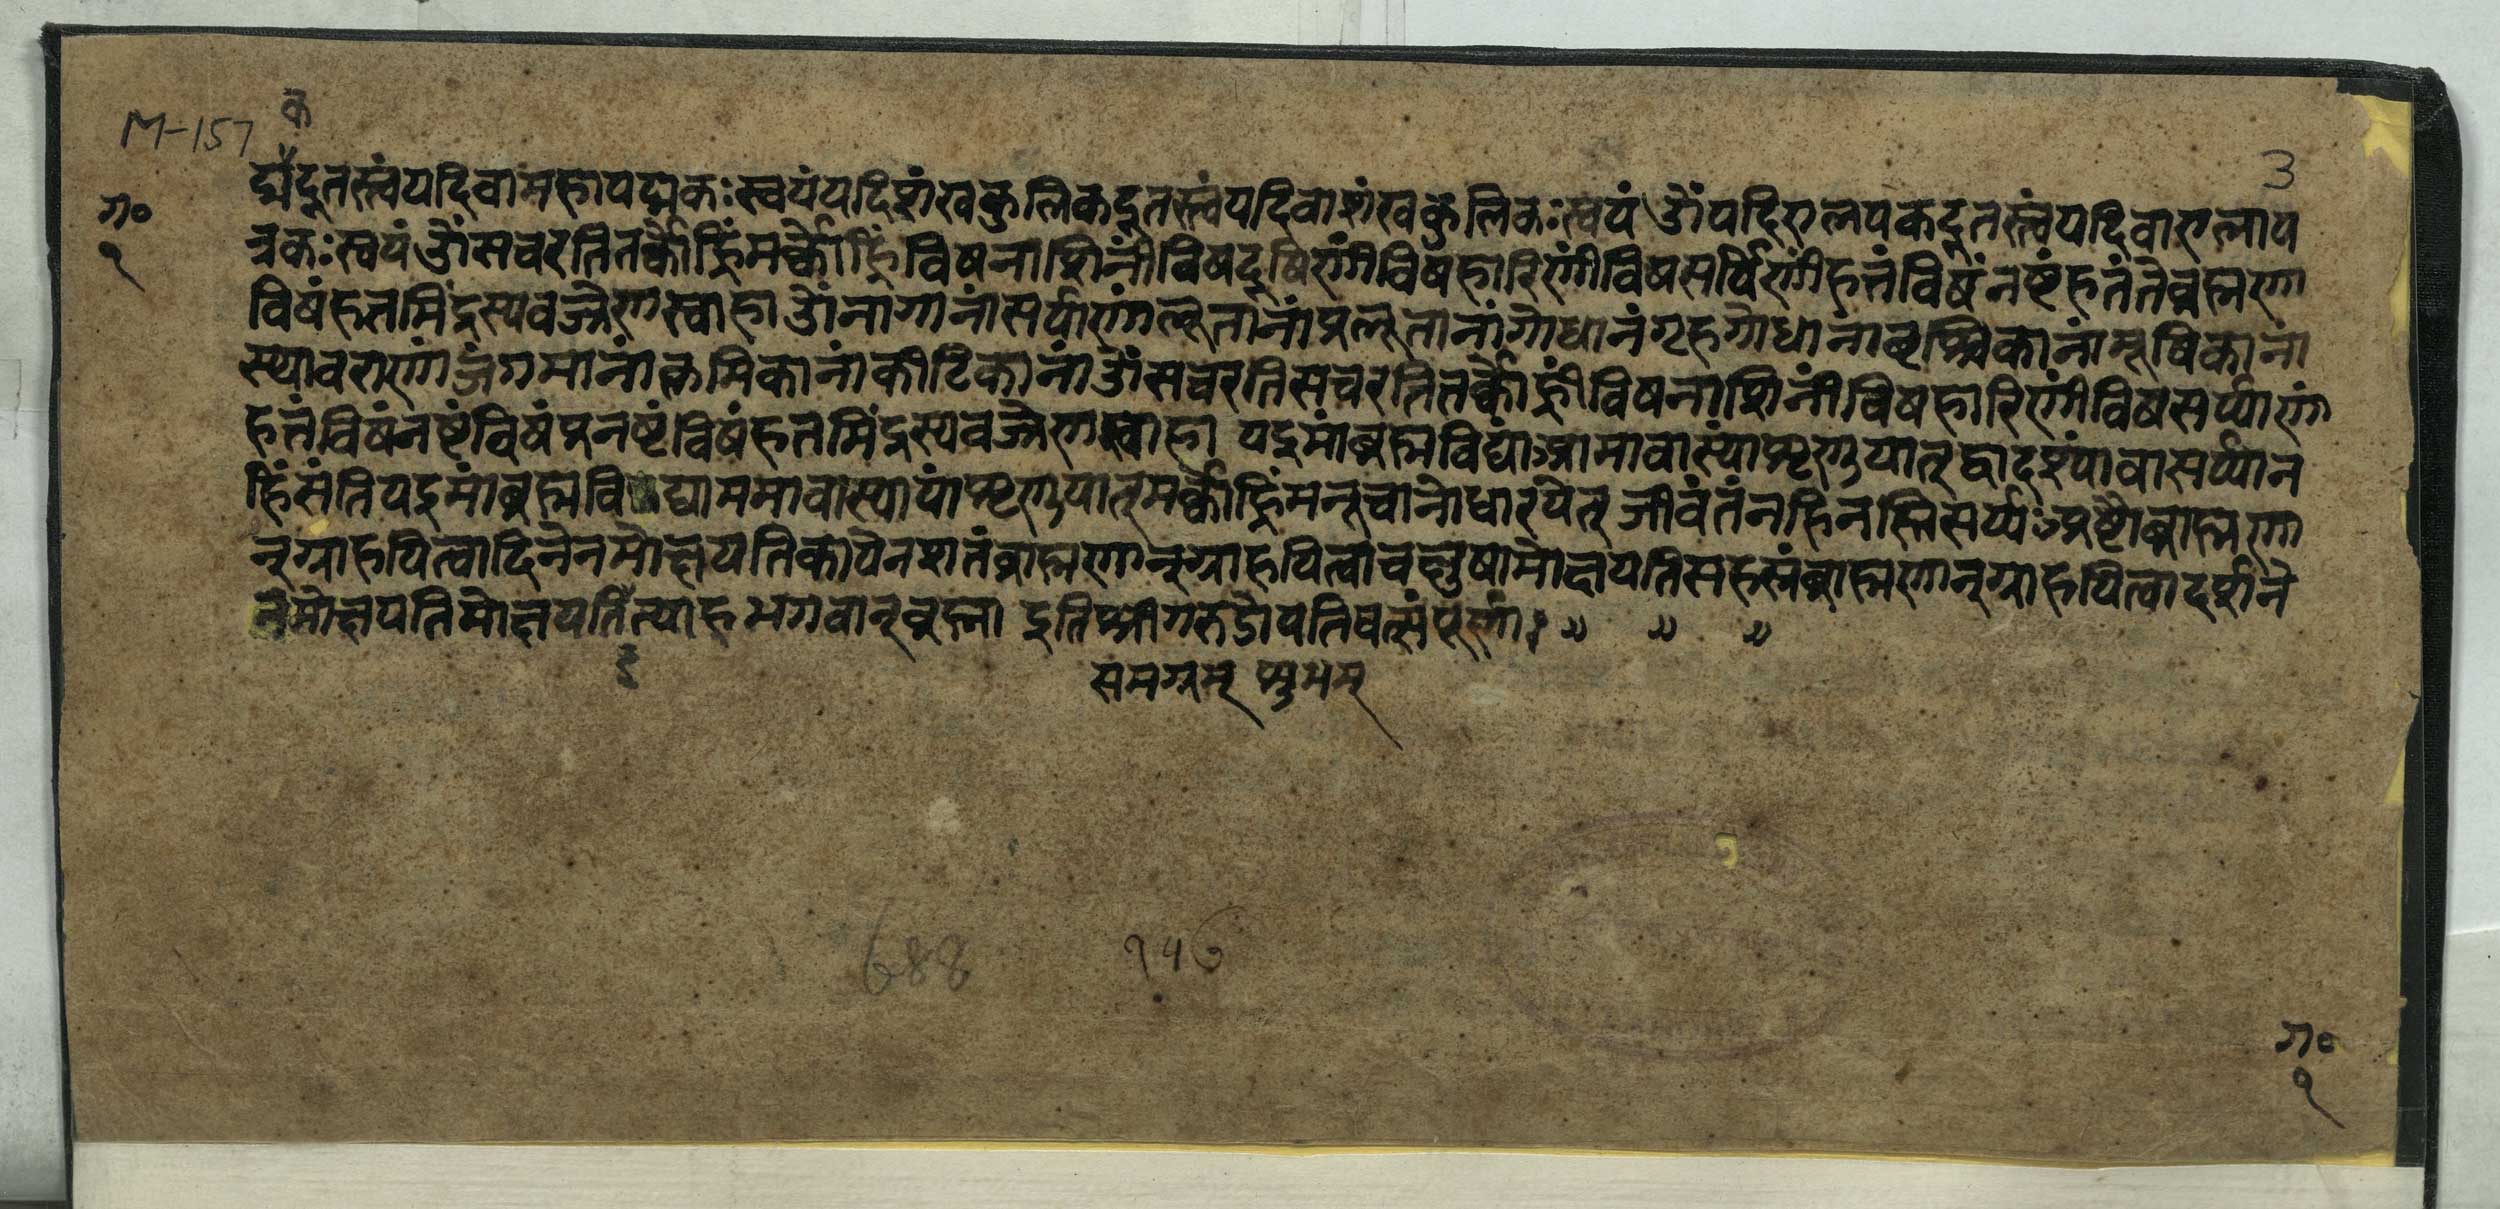 M-157
क
3
द्मदूतस्त्वंयदिवामहापद्मकःस्वयंयदिशंखकुलिकदूतस्त्वंयदिवाशंखकुलिकःस्वयं ॐंयदिएलपकदूतस्त्वंयदिवाएलाप
ग॰
त्रकःस्वयंॐंसचरतितर्कौहिंमर्कौहिंविषनाशिनींविषदूषिणींविषहारिणींविषसर्पिणींहतंविषंनष्टंहतंतेब्रह्मणा
२
विषंहतमिंद्रस्यवज्रेणस्वाहाॐंनागानांसर्पाणांलूतानांप्रलूतानांगोधानंगृहगोधानांवृश्चिकानांमूषिकानां
स्थावराणांजंगमानांकृमिकानांकीटिकानांॐंसचरतिसचरतितर्कौह्रींविषनाशिनींविषहारिणींविषसर्प्पाणां
हतंविषंनष्टंविषंप्रनष्टंविषंहतमिंद्रस्यवज्रेणस्वाहा यइमांब्रह्मविद्यांआमावास्यांशृणुयात् द्वादशंयावासर्प्पान
हिंसंतियइमांब्रह्मविद्याममावास्यायांशृणुयात्मर्कौहिंमनूचानोधारयेत् जीवंतंनहिनस्तिसर्प्पःअष्टौब्राह्मणा
न्ग्राहयित्वादिनेनमोक्षयतिकायेनशतंब्राह्मणान्ग्राहयित्वाचक्षुषामोक्षयतिसहस्रंब्राह्मणान्ग्राहयित्वादर्शने
नमोक्षयतिमोक्षयतित्याहभगवान्ब्रह्मा इतिश्रीगरुडोपनिषत्संपूर्णाः ॥ ॥ ॥
समग्रम् शुभम्
688
१५७
ग॰
२